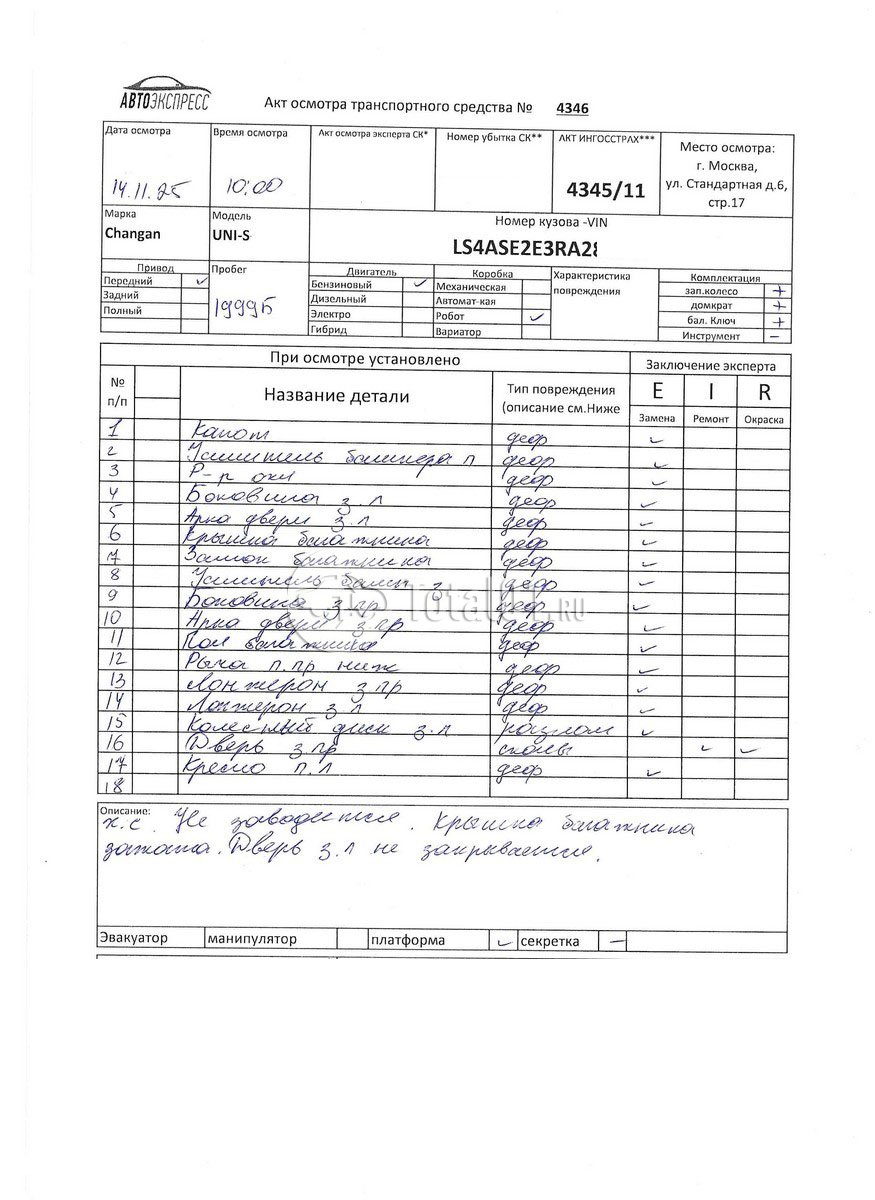 АВТОЭКСПРЕСС
Акт осмотра транспортного средства № 4346
Дата осмотра
14.11.25
Время осмотра
10:00
Акт осмотра эксперта СК*
Номер убытка СК**
АКТ ИНГОССТРАХ***
4345/11
Место осмотра:
г. Москва,
ул. Стандартная д.6,
стр.17
Марка
Changan
Модель
UNI-S
Номер кузова -VIN
LS4ASE2E3RA2
Привод
Передний ✓
Задний
Полный
Пробег
Двигатель
Бензиновый ✓
Дизельный
Электро
Гибрид
Коробка
Механическая
Автомат-кая
Робот ✓
Вариатор
Характеристика
повреждения
Комплектация
зап.колесо +
домкрат +
бал. Ключ +
Инструмент –
При осмотре установлено
Заключение эксперта
№
п/п
Название детали
Тип повреждения
(описание см.Ниже
E I R
Замена Ремонт Окраска
1 Капот деф ✓
2 Усилитель бампера п деф ✓
3 Р-р охл деф ✓
4 Боковина з л деф ✓
5 Арка двери з.л деф ✓
6 Крышка багажника деф ✓
7 Замок багажника деф ✓
8 Усилитель бамп з деф ✓
9 Боковина з пр деф ✓
10 Арка двери з пр деф ✓
11 Пол багажника деф ✓
12 Рычаг п.пр ниж деф ✓
13 Лонжерон з пр деф ✓
14 Лонжерон з л деф ✓
15 Колесный диск з.л разлом ✓
16 Дверь з пр сколы ✓ ✓
17 Кресло п.л деф ✓
18
Описание:
х.с. Не заводится. Крышка багажника
зажата. Дверь з.л не закрывается.
Эвакуатор манипулятор платформа ✓ секретка –
Total01.RU